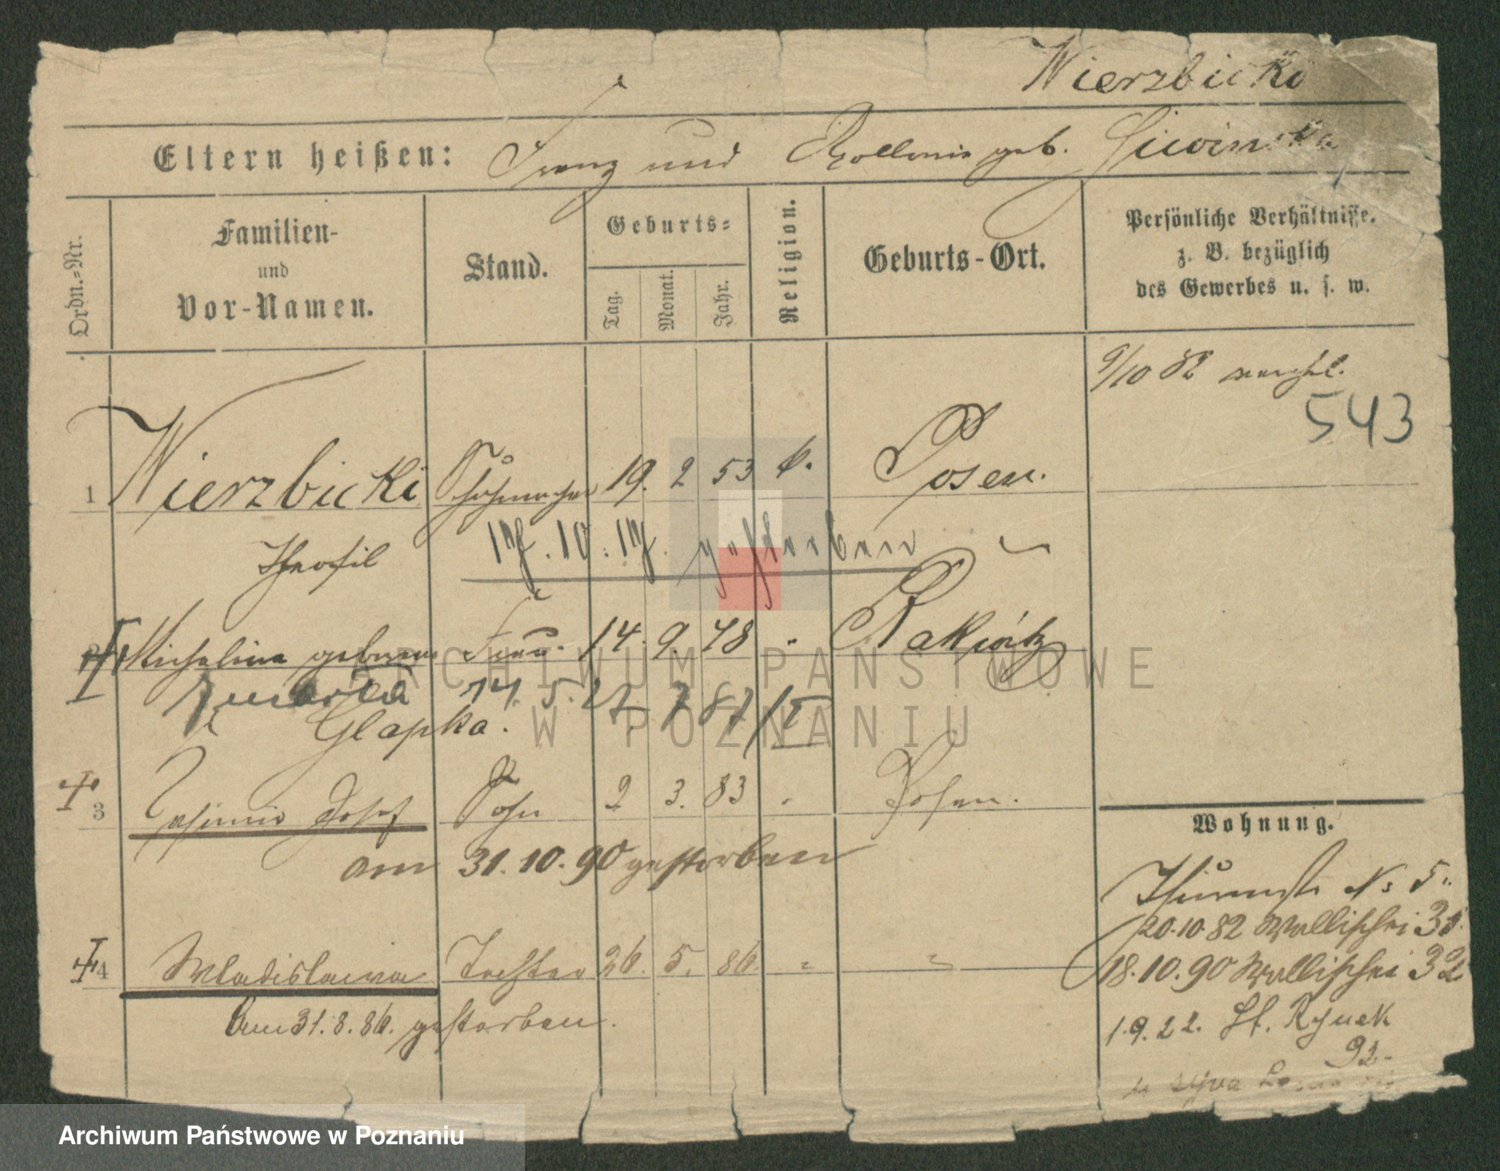 Wierzbicki
Eltern heißen: Franz und Apollonia geb. Siwinska
Ordn.-Nr.
Familien-
und
Vor-Namen.
Stand.
Geburts-
Tag.
Monat.
Jahr.
Religion.
Geburts-Ort.
Persönliche Verhältnisse.
z. B. bezüglich
des Gewerbes u. s. w.
9/10 82
543
1 Wierzbicki Schuhmacher 19. 2 53 k. Posen.
Theofil
17. 10. 17. gestorben
Michalina geborene Frau. 14. 9. 48 " Rakwitz
Glapka.
3 Josef Sohn 2 3. 83 " Posen.
am 31. 10. 90 gestorben
4 Wladislawa Tochter 26 5. 86 " "
am 31. 8. 86. gestorben.
Wohnung.
Thurmstr No 5.
20.10.82 Wallischei
18.10.90 Wallischei 32
1.9.22. St. Rynek
92
ARCHIWUM PAŃSTWOWE
W POZNANIU
Archiwum Państwowe w Poznaniu